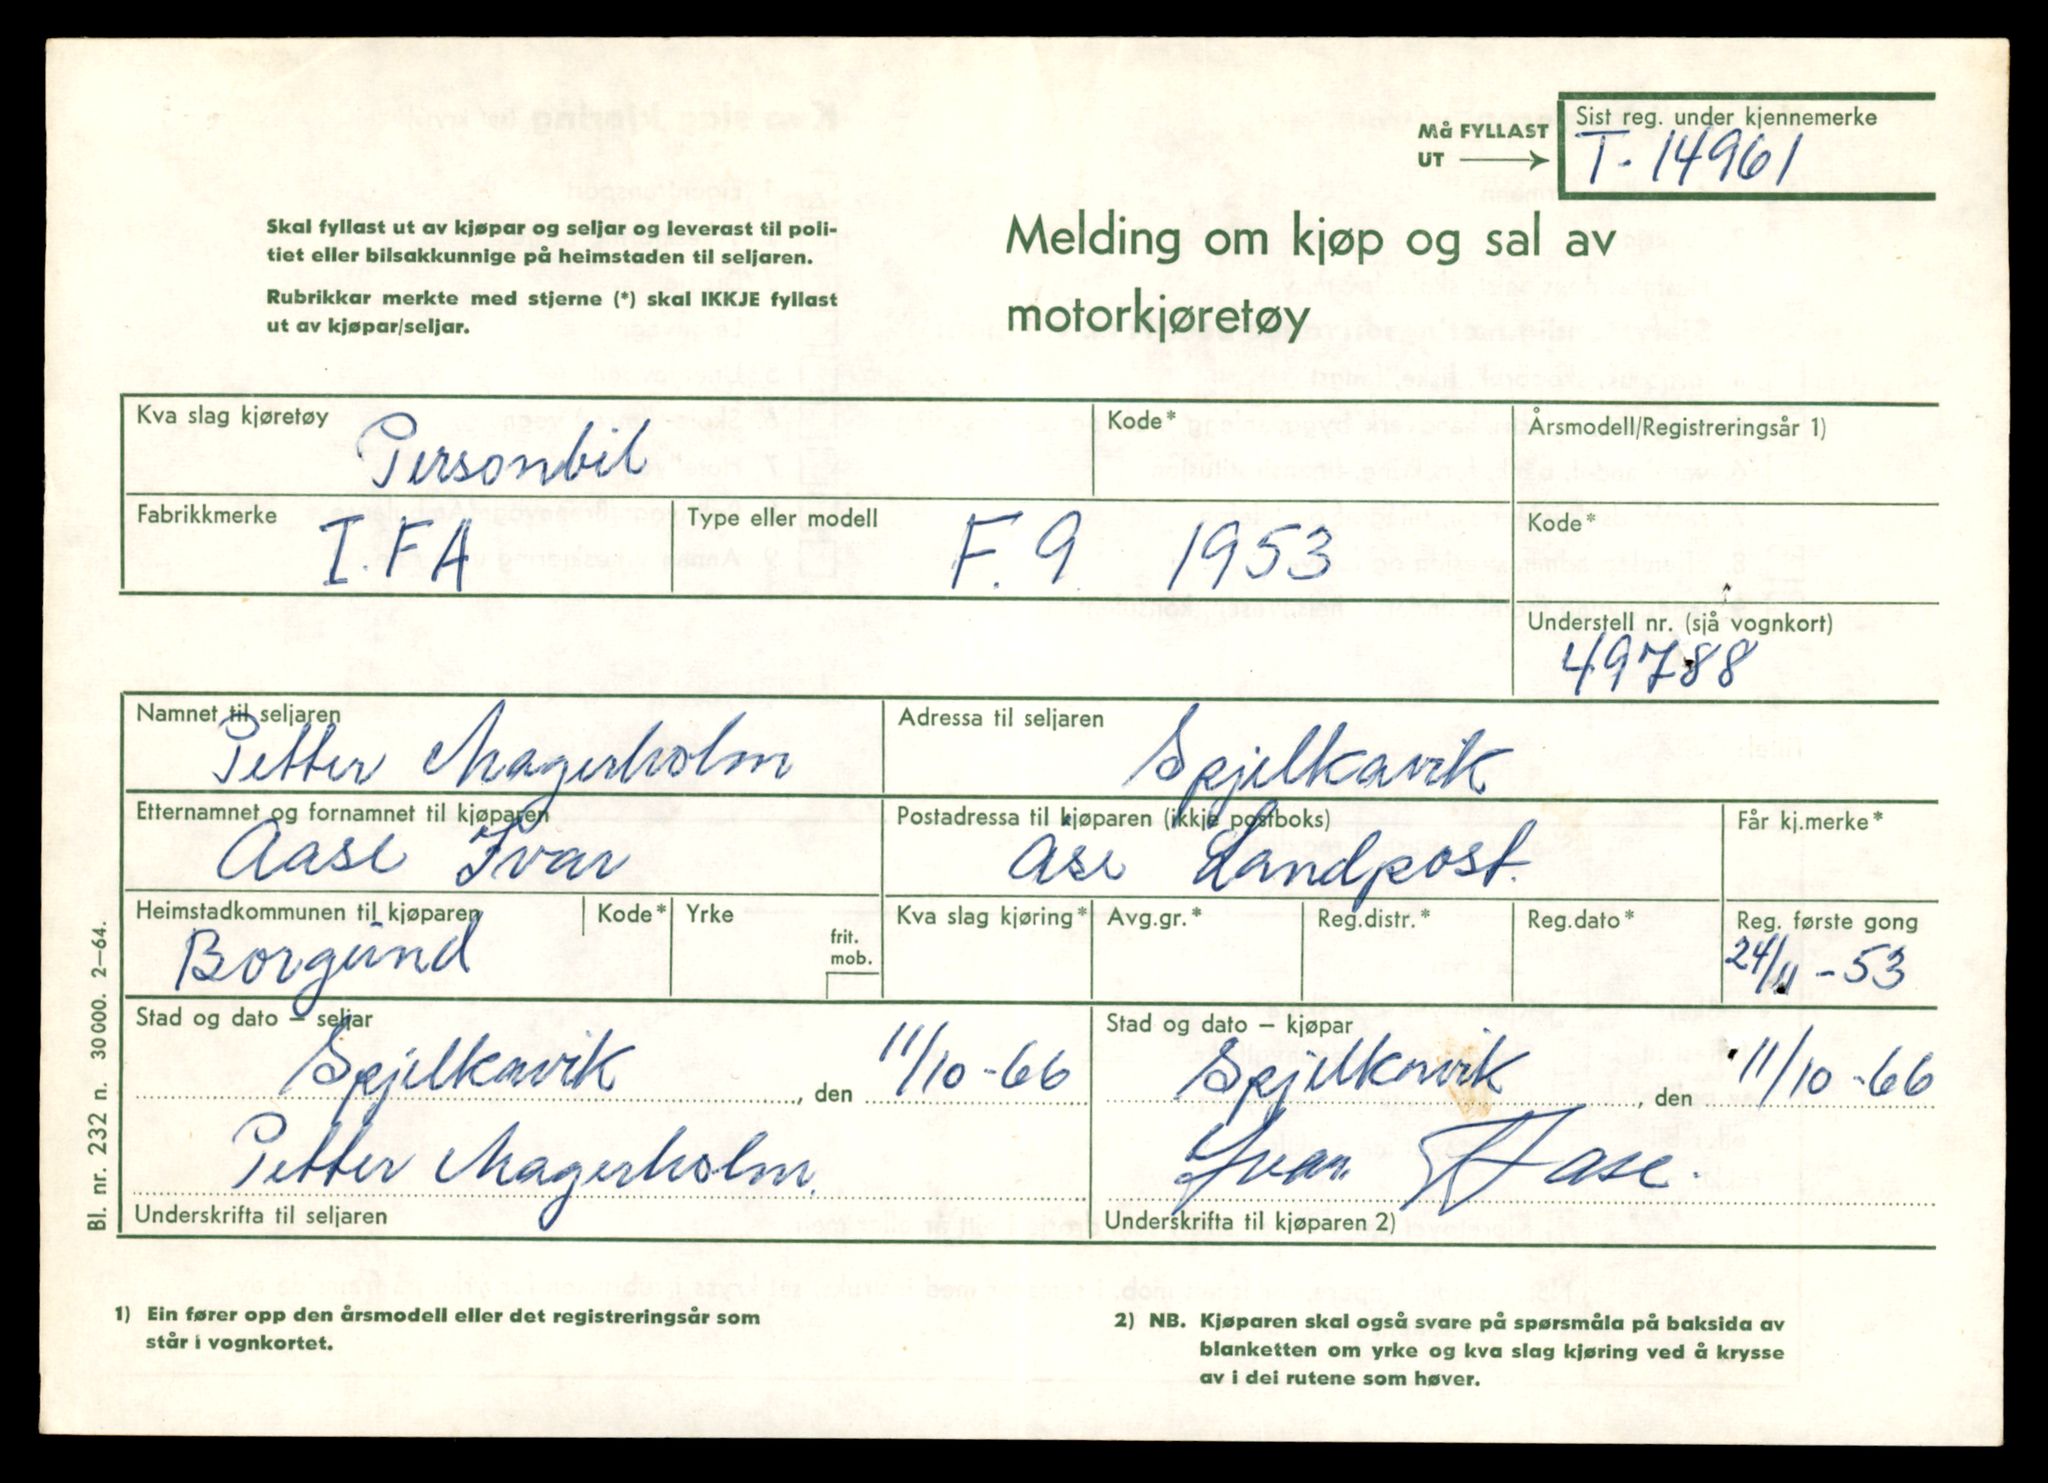 Må FYLLAST UT
Sist reg. under kjennemerke
T-14961
Skal fyllast ut av kjøpar og seljar og leverast til poli-
tiet eller bilsakkunnige på heimstaden til seljaren.
Rubrikkar merkte med stjerne (*) skal IKKJE fyllast
ut av kjøpar/seljar.
Melding om kjøp og sal av
motorkjøretøy
Kva slag kjøretøy
Personbil
Kode*
Årsmodell/Registreringsår 1)
Fabrikkmerke
I.F A
Type eller modell
F. 9 1953
Kode*
Understell nr. (sjå vognkort)
49788
Namnet til seljaren
Petter Magerholm
Adressa til seljaren
Spjelkavik
Etternamnet og fornamnet til kjøparen
Aase Ivar
Postadressa til kjøparen (ikkje postboks)
Åse Landpost.
Får kj.merke*
Heimstadkommunen til kjøparen
Borgund
Kode*
Yrke
frit.
mob.
Kva slag kjøring*
Avg.gr.*
Reg.distr.*
Reg.dato*
Reg. første gong
24/11-53
Stad og dato – seljar
Spjelkavik, den 11/10-66
Petter Magerholm.
Underskrifta til seljaren
Stad og dato – kjøpar
Spjelkavik, den 11/10-66
Ivar Aase.
Underskrifta til kjøparen 2)
Bl. nr. 232 n. 30000. 2–64.
1) Ein fører opp den årsmodell eller det registreringsår som
står i vognkortet.
2) NB. Kjøparen skal også svare på spørsmåla på baksida av
blanketten om yrke og kva slag kjøring ved å krysse
av i dei rutene som høver.